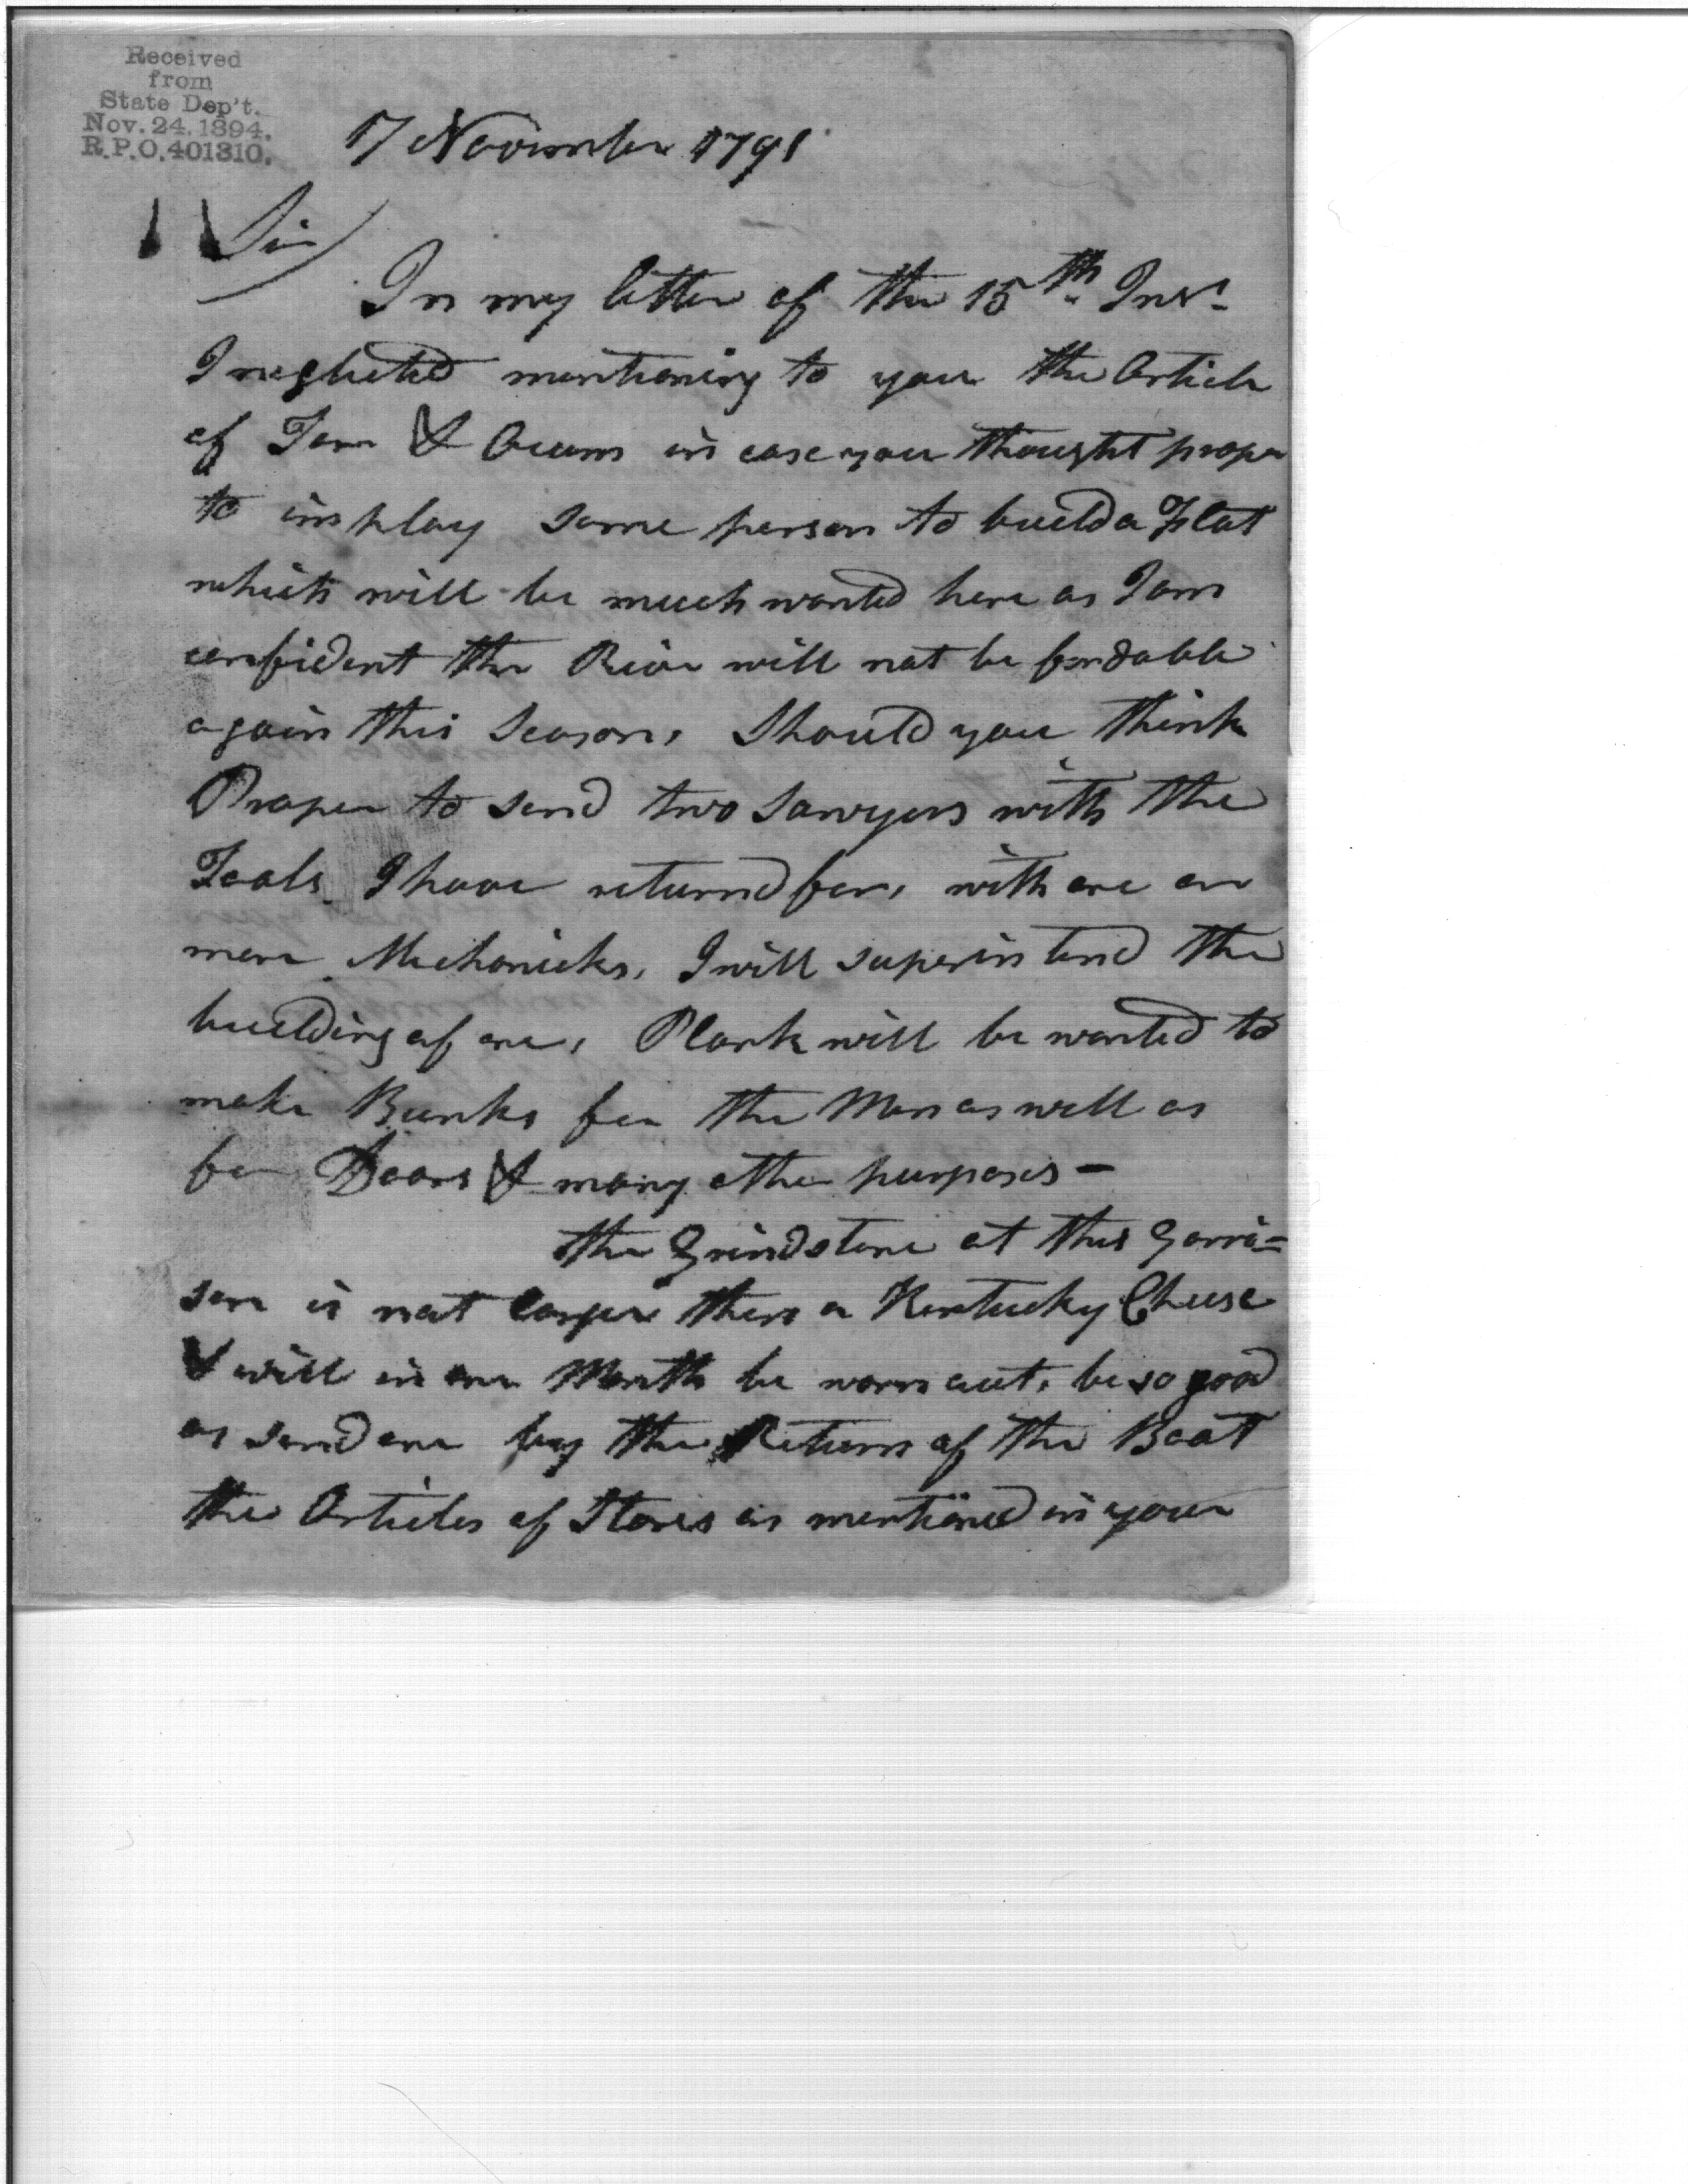 Received
from
State Dep't.
Nov. 24. 1894.
R.P.O. 401310.
17 November 1791
Sir
In my letter of the 15th Inst.
I neglected mentioning to you the Article
of Tarr & Ocum in case you thought proper
to imploy some person to build a Flat
which will be much wanted here as I am
confident the River will not be fordable
again this Season, Should you think
Proper to send two Sawyers with the
Tools I have returnd for, with one or
more Mechanicks, I will superintend the
building of one, Plank will be wanted to
make Bunks for the Men as well as
for Doors & many other purposes —
the Grindstone at this Garri=
son is not larger then a Kentucky Cheese
& will in one Month be worn out, be so good
as send one by the Return of the Boat
the Articles of Stores as mentioned in your